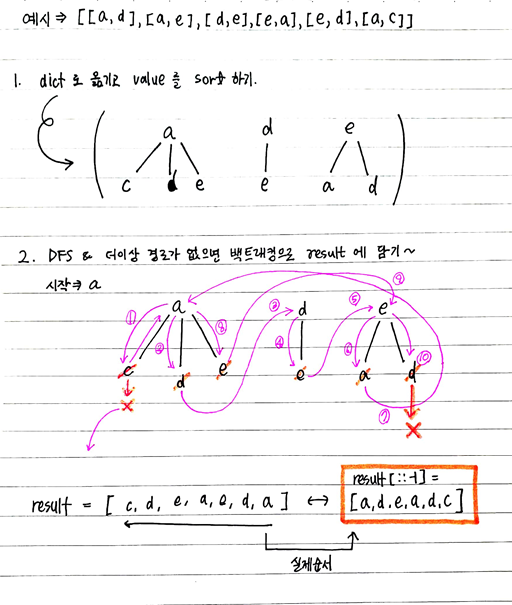 예시 ⇒ [[a,d],[a,e],[d,e],[e,a],[e,d],[a,c]]
1. dict 로 옮기고 value 를 sort 하기.
a d e
c d e e a d
2. DFS & 더이상 경로가 없으면 백트래킹으로 result 에 담기~
시작⇒ a
① ② ③ ④ ⑤ ⑥ ⑦ ⑧ ⑨ ⑩
a d e
c d e e a d
x x
result = [ c, d, e, a, e, d, a ] ↔ result[::-1] =
[a,d,e,a,d,c]
실제순서